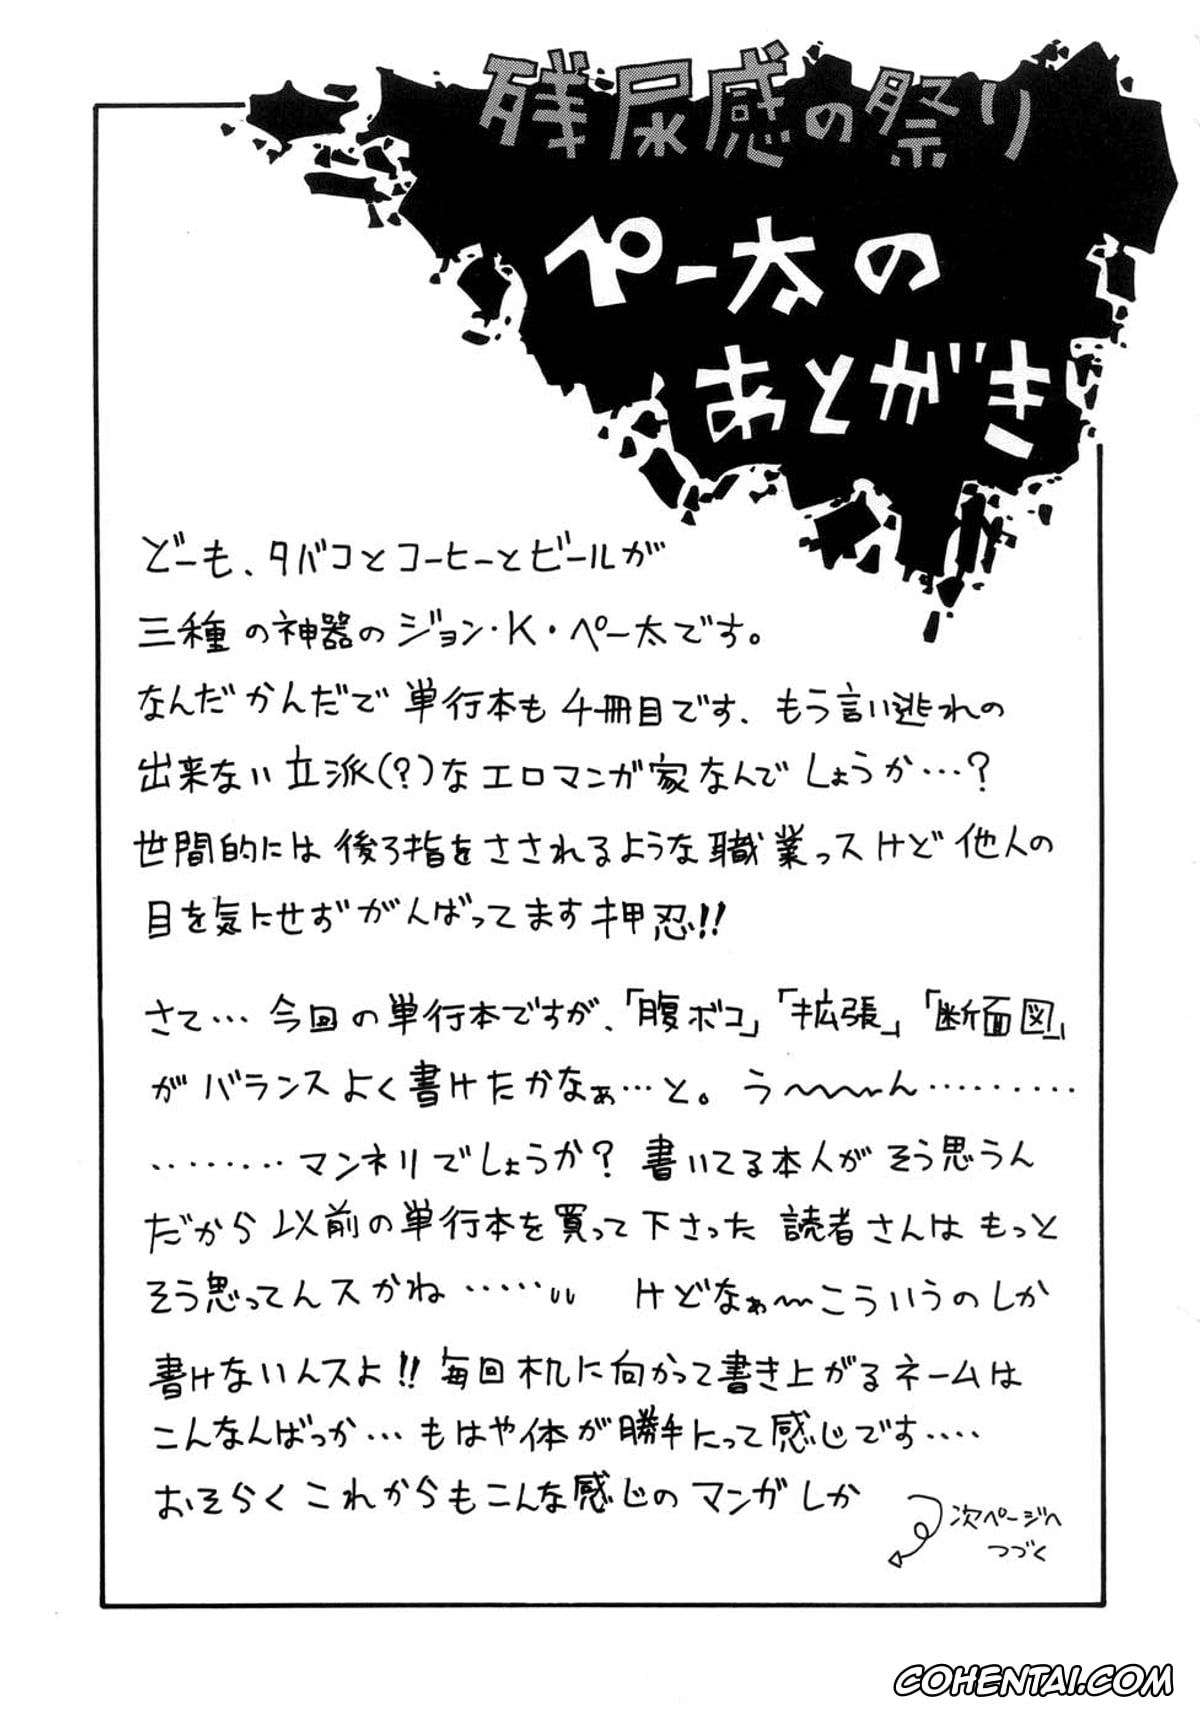 残尿感の祭り
ペー太の
あとがき
どーも、タバコとコーヒーとビールが
三種の神器のジョン・K・ペー太です。
なんだかんだで単行本も4冊目です、もう言い逃れの
出来ない立派(?)なエロマンガ家なんでしょうか…?
世間的には後ろ指をさされるような職業っスけど他人の
目を気にせずがんばってます押忍!!
さて…今回の単行本ですが、「腹ボコ」「拡張」「断面図」
がバランスよく書けたかなぁ…と。う〜〜〜ん………
………マンネリでしょうか?書いてる本人がそう思うん
だから以前の単行本を買って下さった読者さんはもっと
そう思ってんスかね……　けどなぁ〜こういうのしか
書けないんスよ!!毎回机に向かって書き上がるネームは
こんなんばっか…もはや体が勝手にって感じです….
おそらくこれからもこんな感じのマンガしか
次ページへ
つづく
COHENTAI.COM